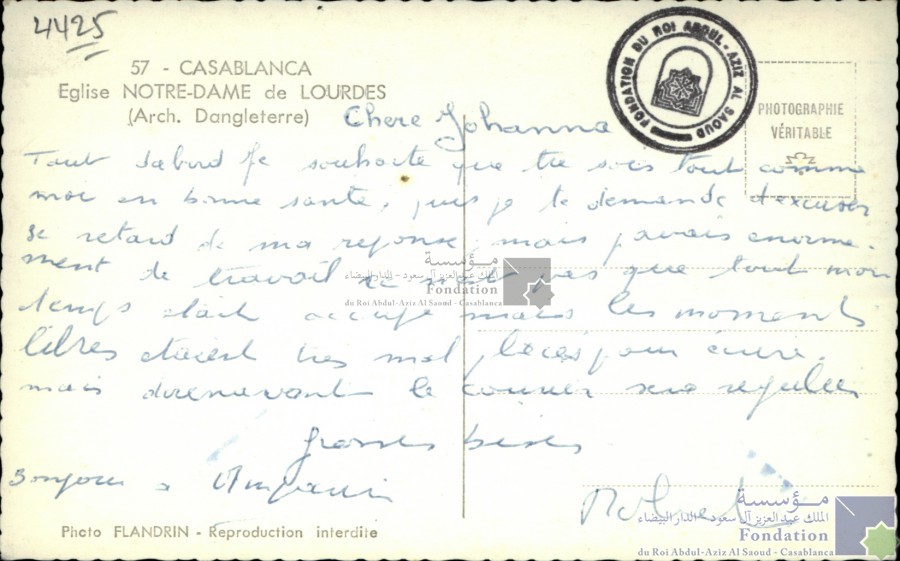 4425
57 - CASABLANCA
Eglise NOTRE-DAME de LOURDES
(Arch. Dangleterre)
FONDATION DU ROI ABDUL-AZIZ AL SAOUD
PHOTOGRAPHIE
VÉRITABLE
Chere Johanna
Tout dabord je souhaite que tu sois tout comme
moi en bonne santé, puis je te demande d'excuser
le retard de ma reponse, mais j'avais enorme-
ment de travail ce n'est pas que tout mon
temps était occupé mais les moments
libres étaient très mal placés pour écrire.
mais dorenavant le courrier sera regulier
grosses bises
Bonjour a
مؤسسة
الملك عبد العزيز آل سعود - الدار البيضاء
Fondation
du Roi Abdul-Aziz Al Saoud - Casablanca
Photo FLANDRIN - Reproduction interdite
مؤسسة
الملك عبد العزيز آل سعود - الدار البيضاء
Fondation
du Roi Abdul-Aziz Al Saoud - Casablanca